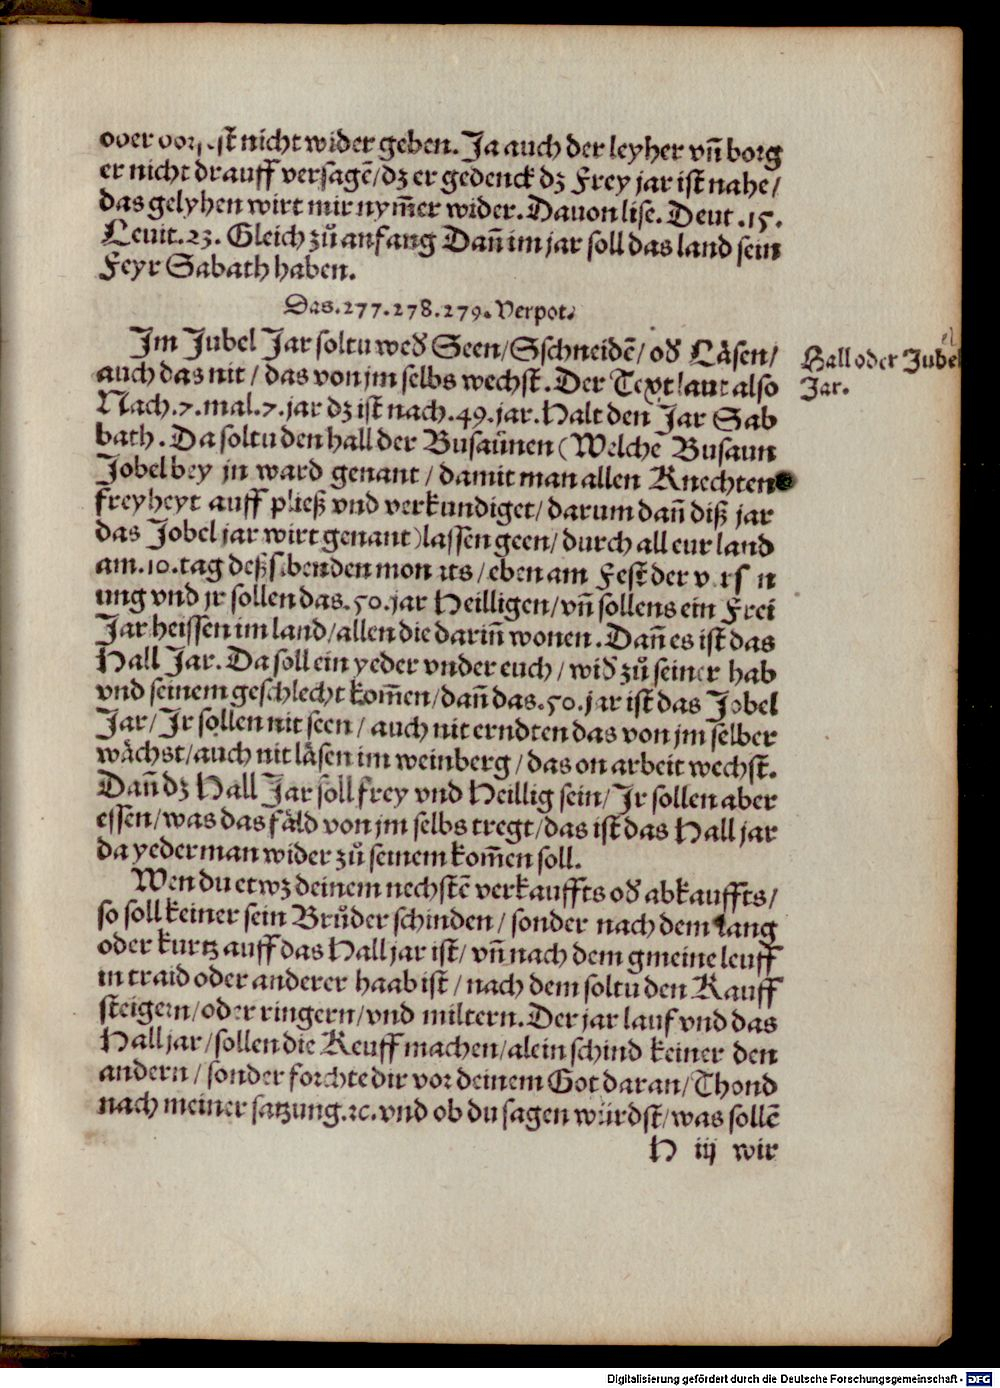 nicht wider geben. Ja auch der leyher vñ borg
er nicht drauff versagẽ/dz er gedenck dz Frey jar ist nahe/
das gelyhen wirt mir nym̃er wider. Dauon lise. Deut .15.
Leuit.23. Gleich zů anfang Dañ im jar soll das land sein
Feyr Sabath haben.
Das.277.278.279. Verpot.
Im Jubel Jar soltu wed͛ Seen/Sschneidẽ/ od͛ Läsen/
Hall oder Jubel
Jar.
auch das nit / das von jm selbs wechst. Der Text laut also
Nach.7.mal.7.jar dz ist nach.49.jar. Halt den Jar Sab
bath. Da soltu den hall der Busaůnen (Welche Busaun
Jobel bey jn ward genant / damit man allen Knechten
freyheyt auff pließ vnd verkundiget/ darum dañ diß jar
das Jobel jar wirt genant )lassen geen/ durch all eur land
am.10.tag deß sibenden monats /eben am Fest der
ung vnd jr sollen das.50.jar Heilligen/vñ sollens ein Frei
Jar heissen im land/allen die dariñ wonen. Dañ es ist das
Hall Jar. Da soll ein yeder vnder euch / wid͛ zů seiner hab
vnd seinem geschlecht kom̃en/dañ das.50.jar ist das Jobel
Jar/ Jr sollen nit seen / auch nit erndten das von jm selber
wächst/auch nit läsen im weinberg /das on arbeit wechst.
Dañ dz Hall Jar soll frey vnd Heillig sein/ Jr sollen aber
essen/was das fäld von jm selbs tregt/das ist das Hall jar
da yederman wider zů seinem kom̃en soll.
Wen du etwz deinem nechstẽ verkauffts od͛ abkauffts/
so soll keiner sein Brůder schinden / sonder nach dem lang
oder kurtz auff das Hall jar ist/ vñ nach dem gmeine leuff
in traid oder anderer haab ist / nach dem soltu den Kauff
steigern/oder ringern/vnd miltern. Der jar lauf vnd das
Hall jar /sollen die Keuff machen/alein schind keiner den
andern / sonder forchte dir vor deinem Got daran/Thond
nach meiner satzung.ꝛc.vnd ob du sagen würdst/was sollẽ
H iij wir
Digitalisierung gefördert durch die Deutsche Forschungsgemeinschaft - DFG